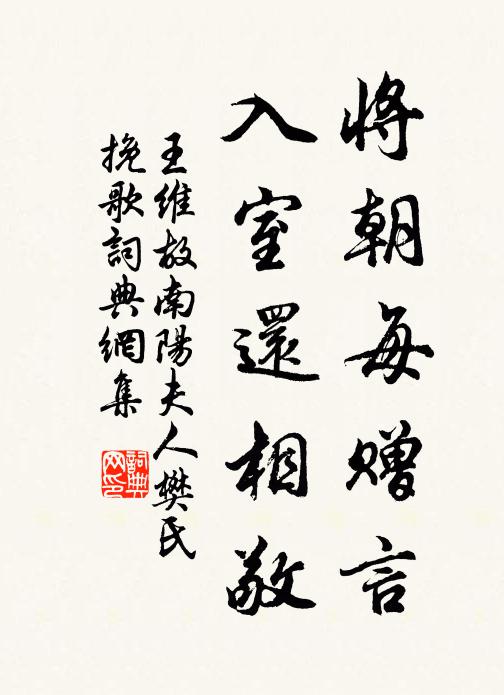 將朝每贈言
入室還相敬
王維故南陽夫人樊氏
挽歌詞典網集
詞典
网印